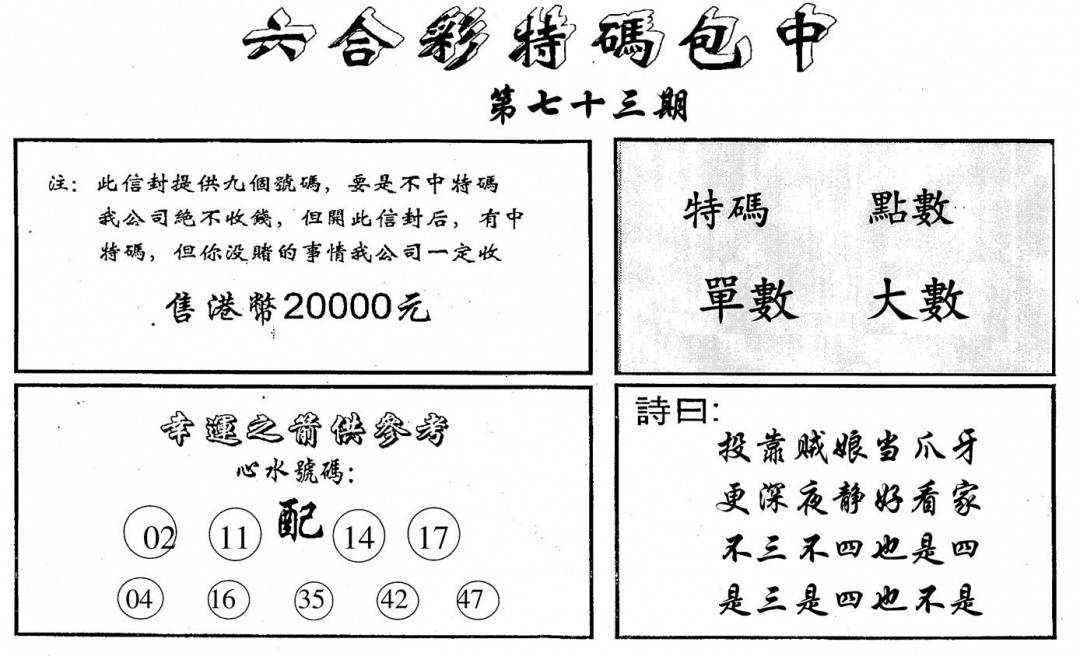 六合彩特碼包中
第七十三期
注：此信封提供九個號碼，要是不中特碼
我公司絕不收錢，但開此信封后，有中
特碼，但你没賭的事情我公司一定收
售港幣20000元
特碼 點數
單數 大數
幸運之箭供參考
心水號碼：
02 11 配 14 17
04 16 35 42 47
詩曰：
投靠贼娘当爪牙
更深夜静好看家
不三不四也是四
是三是四也不是